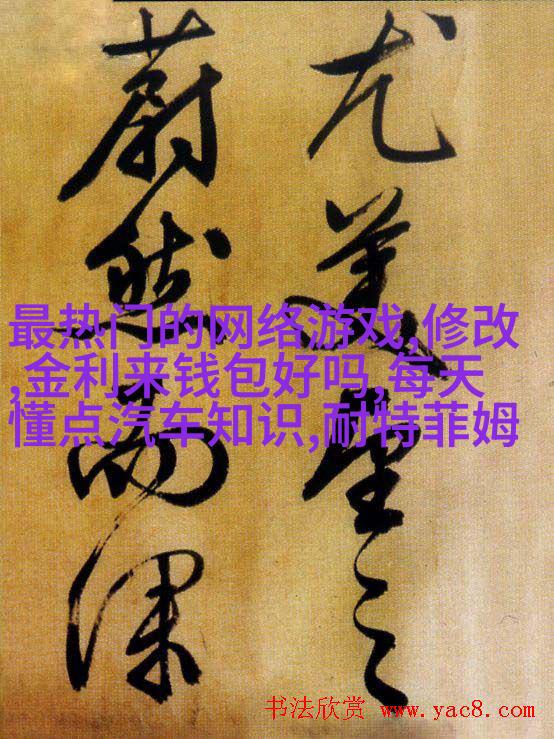 尤美望之
蔚然而深
最热门的网络游戏,修改
,金利来钱包好吗,每天
懂点汽车知识,耐特菲姆
书法欣赏 www.yac8.com